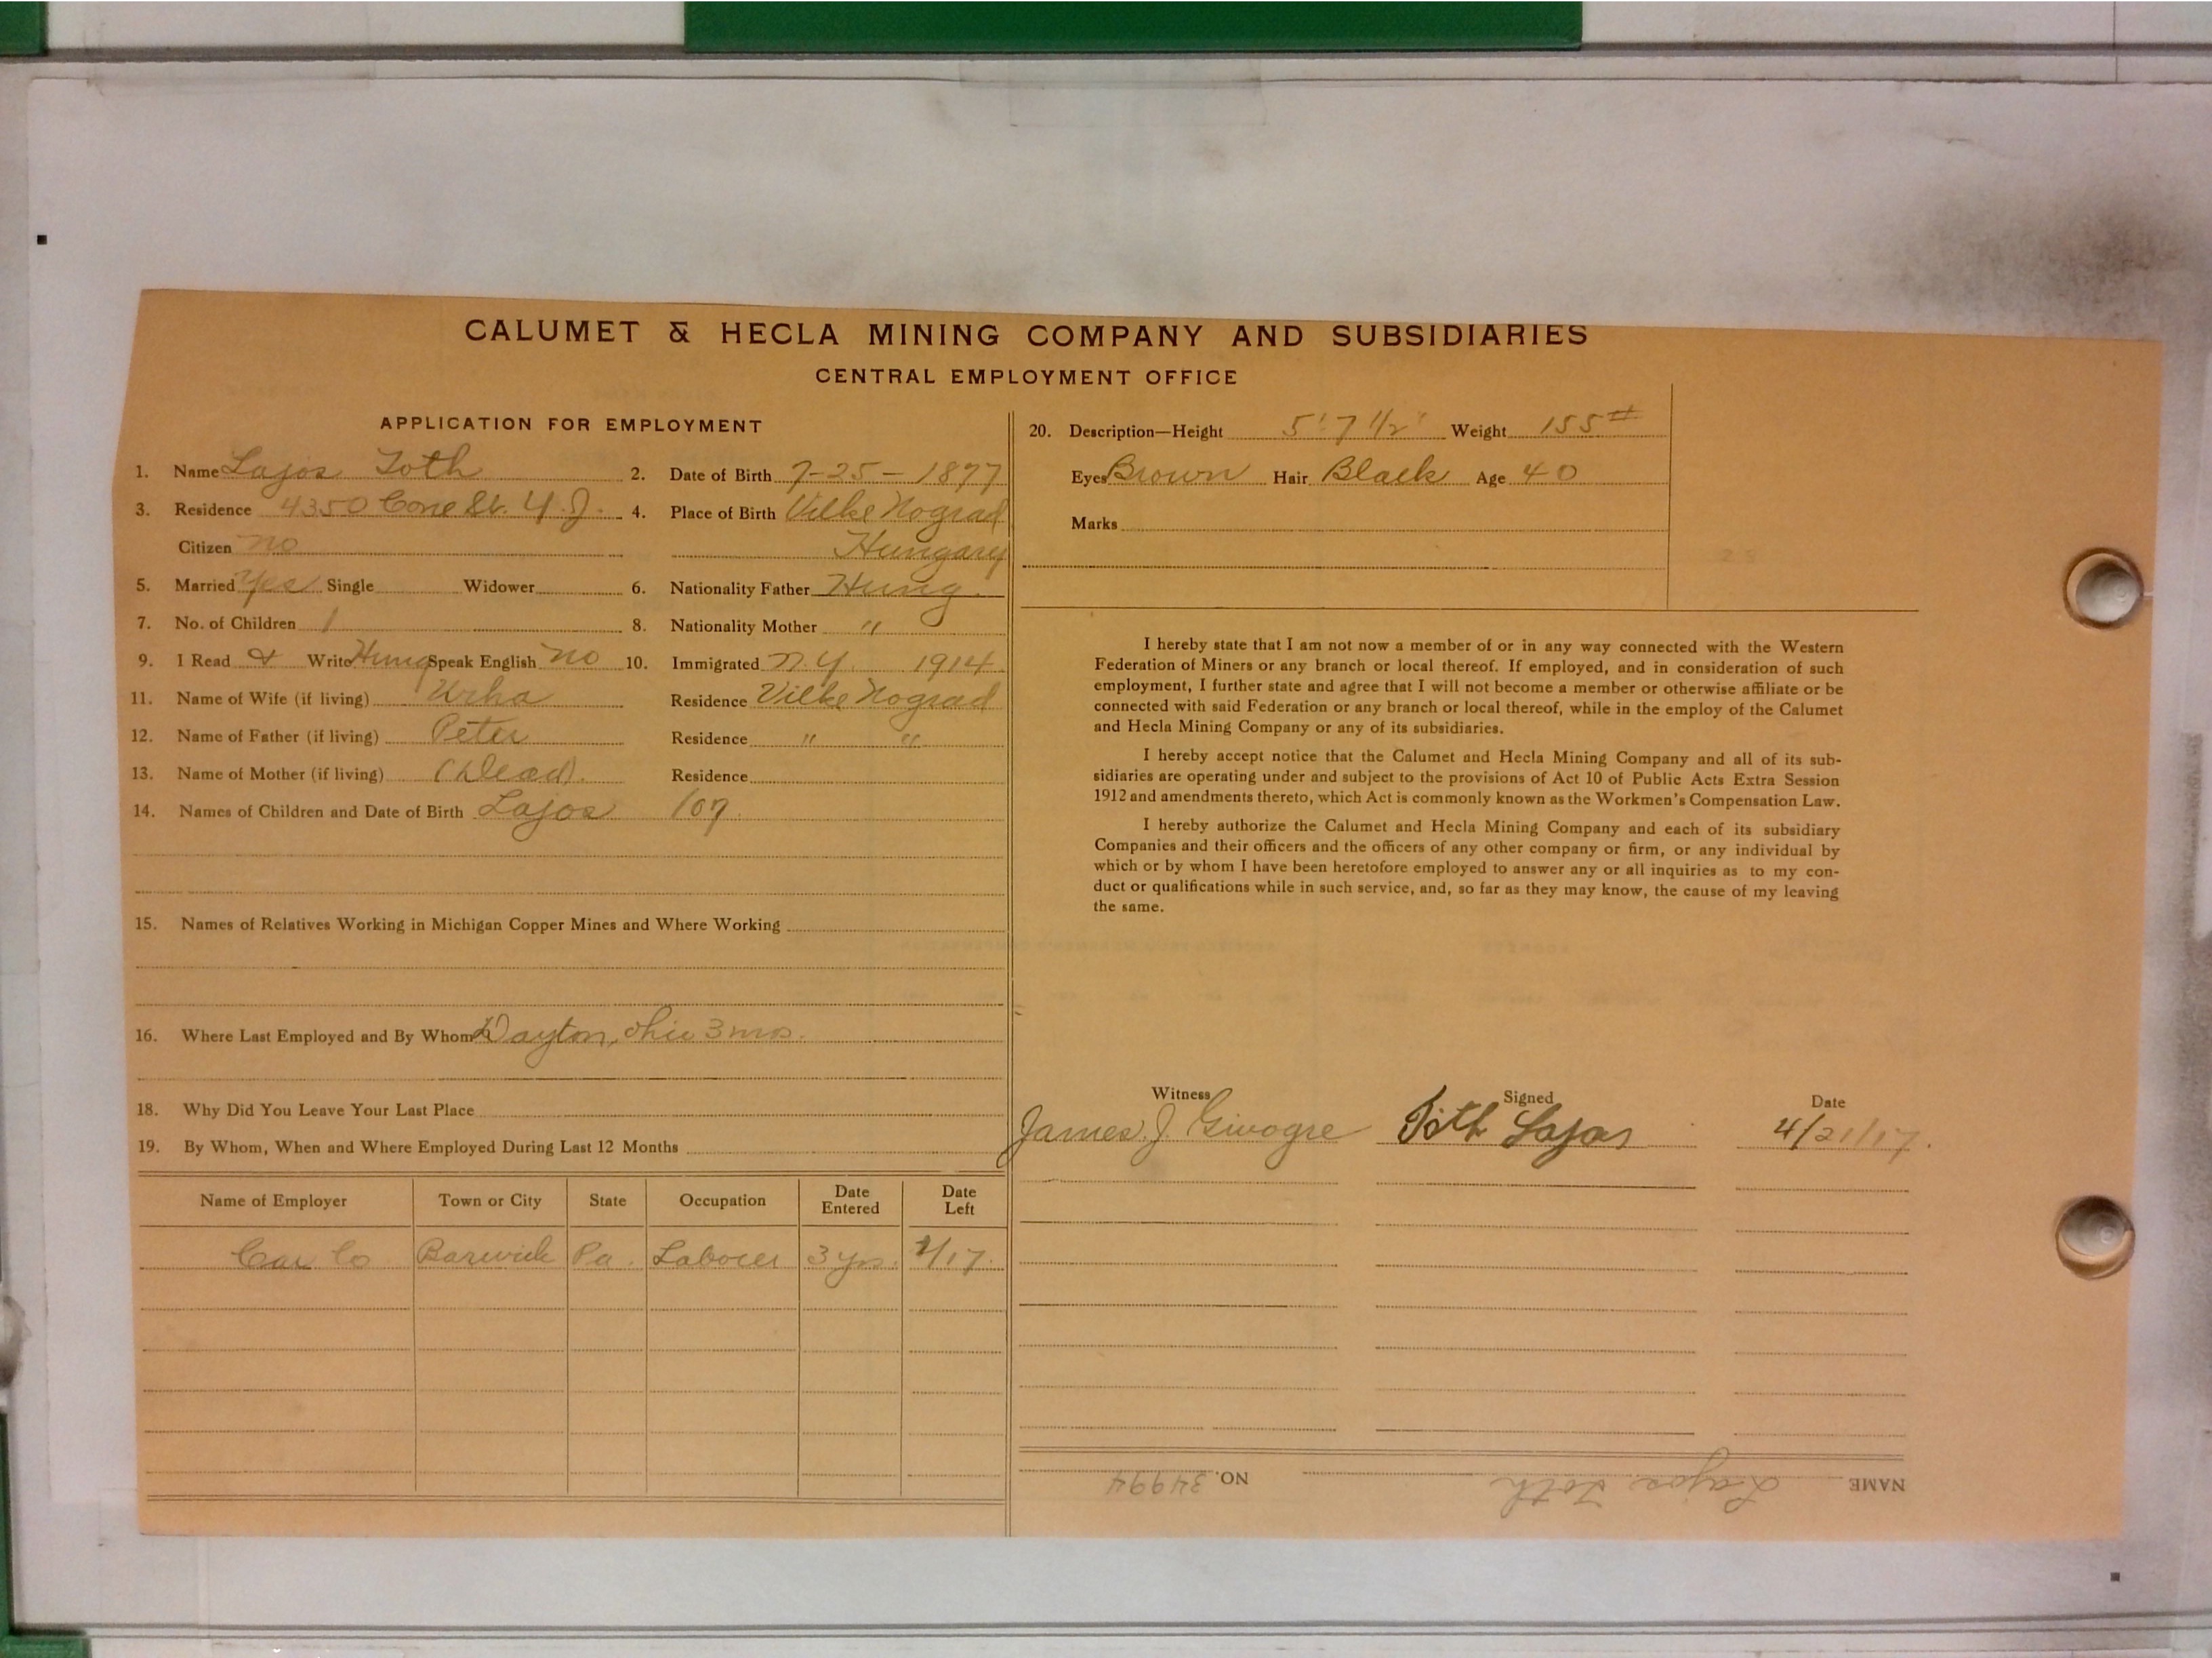 CALUMET & HECLA MINING COMPANY AND SUBSIDIARIES
CENTRAL EMPLOYMENT OFFICE
APPLICATION FOR EMPLOYMENT
1. Name Lajos Toth 2. Date of Birth 7-25-1877
3. Residence 4350 Cone St. Y.J. 4. Place of Birth Vilke Nograd
Citizen no Hungary
5. Married Yes Single Widower 6. Nationality Father Hung.
7. No. of Children 1 8. Nationality Mother "
9. I Read & Write Hung Speak English no 10. Immigrated N.Y. 1914
11. Name of Wife (if living) Residence Vilke Nograd
12. Name of Father (if living) Peter Residence " "
13. Name of Mother (if living) (Dead). Residence
14. Names of Children and Date of Birth Lajos
15. Names of Relatives Working in Michigan Copper Mines and Where Working
16. Where Last Employed and By Whom Dayton, Ohio 3 mos.
18. Why Did You Leave Your Last Place
19. By Whom, When and Where Employed During Last 12 Months
Name of Employer Town or City State Occupation Date Entered Date Left
Car Co Barwick Pa. Laborer 3 yrs. /17.
20. Description—Height 5' 7 1/2' Weight 155#
Eyes Brown Hair Black Age 40
Marks
I hereby state that I am not now a member of or in any way connected with the Western
Federation of Miners or any branch or local thereof. If employed, and in consideration of such
employment, I further state and agree that I will not become a member or otherwise affiliate or be
connected with said Federation or any branch or local thereof, while in the employ of the Calumet
and Hecla Mining Company or any of its subsidiaries.
I hereby accept notice that the Calumet and Hecla Mining Company and all of its sub-
sidiaries are operating under and subject to the provisions of Act 10 of Public Acts Extra Session
1912 and amendments thereto, which Act is commonly known as the Workmen's Compensation Law.
I hereby authorize the Calumet and Hecla Mining Company and each of its subsidiary
Companies and their officers and the officers of any other company or firm, or any individual by
which or by whom I have been heretofore employed to answer any or all inquiries as to my con-
duct or qualifications while in such service, and, so far as they may know, the cause of my leaving
the same.
Witness Signed Date
James J. Givogre Tóth Lajos 4/21/17.
NAME Lajos Toth NO. 34994